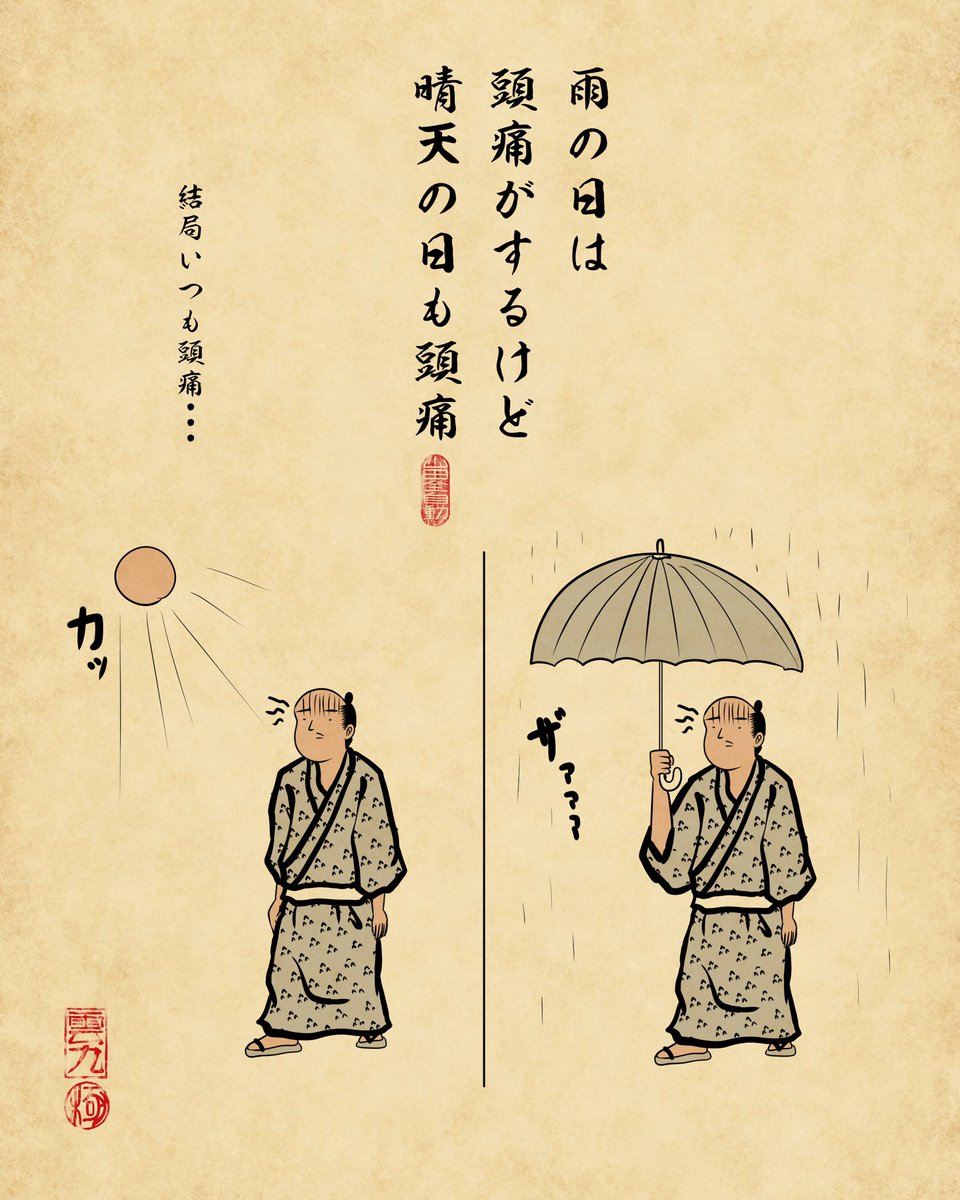 雨の日は
頭痛がするけど
晴天の日も頭痛
結局いつも頭痛・・・
ザァァァァ
カッ